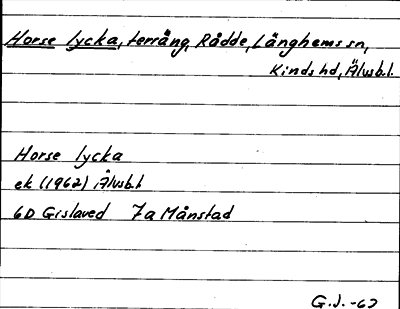 Horse lycka, terräng, Rådde, Länghems sn,
Kinds hd, Älvsb.l.
Horse lycka
ek (1962) Älvsb.l
6D Gislaved 7a Månstad
G.J. -67